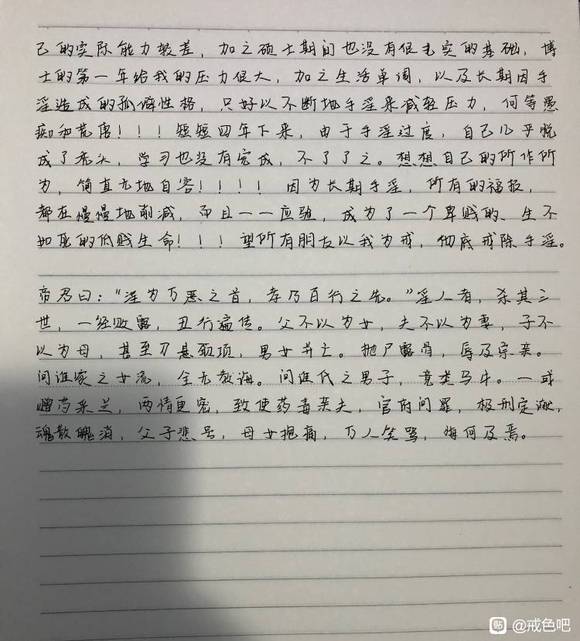 己的实际能力较差，加之硕士期间也没有很扎实的基础，博
士的第一年给我的压力很大，加之生活单调，以及长期因手
淫造成的孤僻性格，只好以不断地手淫来减轻压力，何等愚
痴和荒唐！！！短短四年下来，由于手淫过度，自己几乎脱
成了秃头，学习也没有完成，不了了之。想想自己的所作所
为，简直无地自容！！！！因为长期手淫，所有的福报，
都在慢慢地削减，而且一一应验，成为了一个卑贱的、生不
如死的低贱生命！！！望所有朋友以我为戒，彻底戒除手淫。
帝君曰：“淫为万恶之首，孝乃百行之先。”淫人者，杀其三
世，一经败露，丑行遍传。父不以为女，夫不以为妻，子不
以为母，甚至刃悬颈项，男女并亡。抛尸露骨，辱及宗亲。
问谁家之女流，全无教诲。问谁氏之男子，竟类马牛。一或
赠芍采兰，两情更密，致使药毒亲夫，官府问罪，极刑定谳，
魂散魄消，父子悲号，母女抱痛，万人笑骂，悔何及焉。
贴 @戒色吧